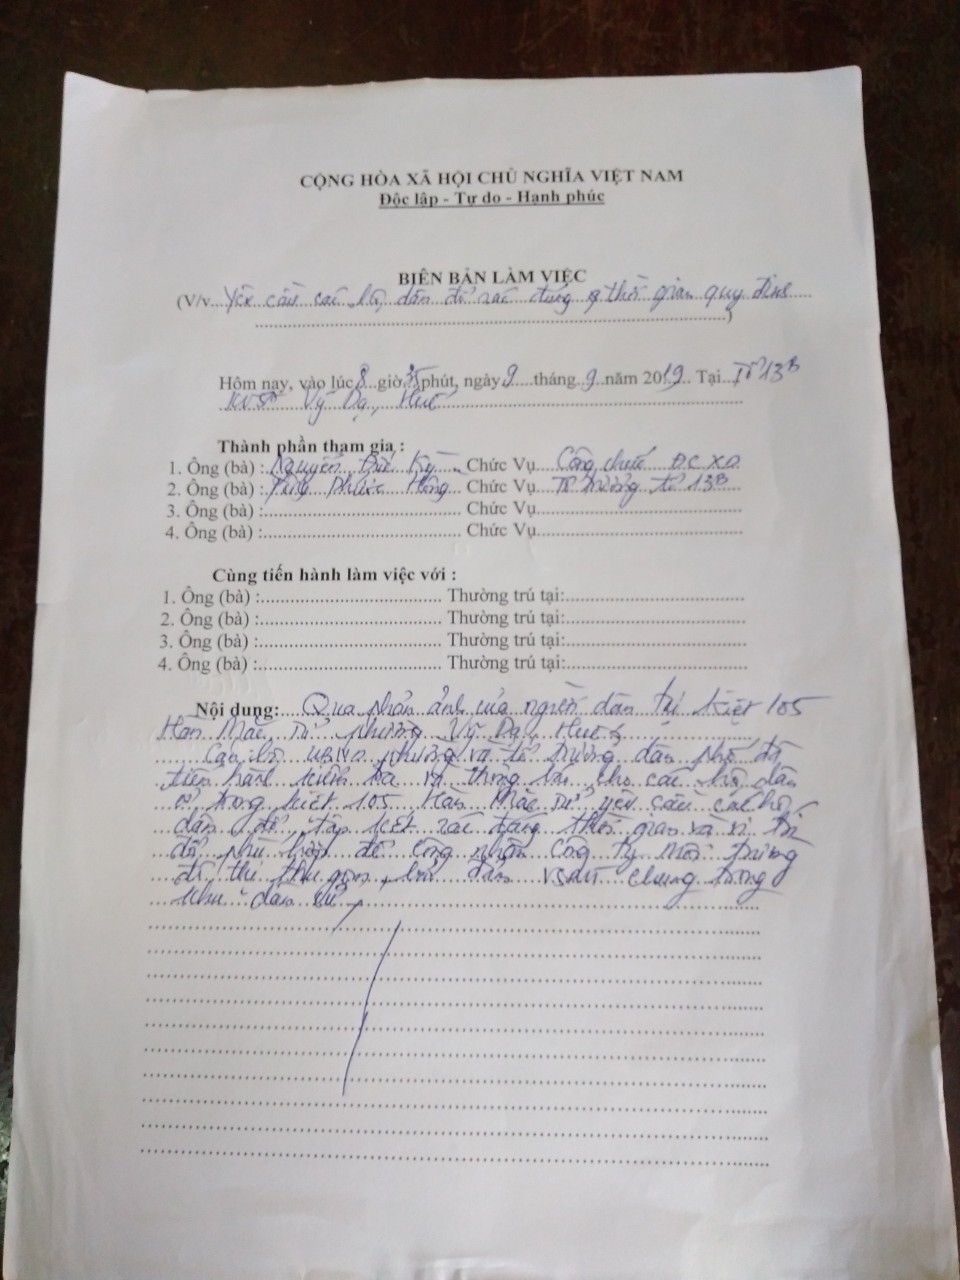 CỘNG HÒA XÃ HỘI CHỦ NGHĨA VIỆT NAM
Độc lập - Tự do - Hạnh phúc
BIÊN BẢN LÀM VIỆC
(V/v...Yêu cầu các hộ dân đổ rác đúng thời gian quy định....
....................)
Hôm nay, vào lúc 8 giờ 35 phút, ngày 9 tháng 9 năm 2019. Tại Tổ 13B
Vỹ Dạ, Huế
Thành phần tham gia :
1. Ông (bà) : Nguyễn Đức Kỳ Chức Vụ Công chức ĐC XD
2. Ông (bà) : Phước Hồng Chức Vụ Tổ trưởng tổ 13B
3. Ông (bà) :.................... Chức Vụ....................
4. Ông (bà) :.................... Chức Vụ....................
Cùng tiến hành làm việc với :
1. Ông (bà) :.................... Thường trú tại:....................
2. Ông (bà) :.................... Thường trú tại:....................
3. Ông (bà) :.................... Thường trú tại:....................
4. Ông (bà) :.................... Thường trú tại:....................
Nội dung: Qua phản ánh của người dân tại kiệt 105
Hàn Mặc Tử phường Vỹ Dạ, Huế
Cán bộ UBND phường và tổ trưởng dân phố đã
tiến hành kiểm tra và thông báo cho các hộ dân
ở trong kiệt 105 Hàn Mặc Tử yêu cầu các hộ
dân để tập kết rác đúng thời gian và vị trí
để phù hợp để công nhân công ty môi trường
đi thu gom, đảm VSMT chung trong
khu dân cư